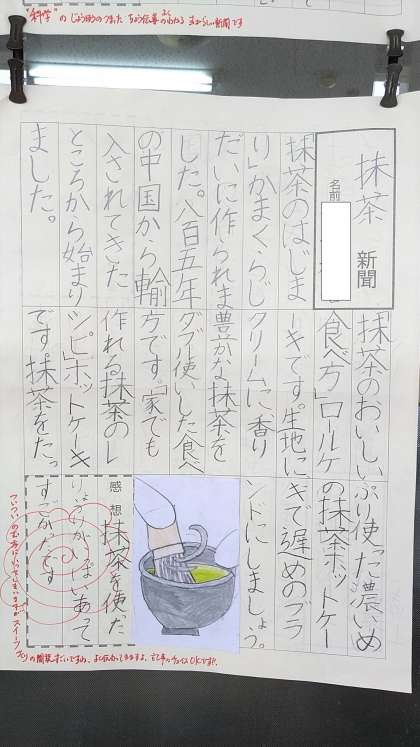 "科学"の じょうほうのつまった ちょう伝導のわかる すばらしい新聞です
抹茶 新聞
名前
「抹茶のはじま
り」かまくらじ
だいに作られま
した。八百五年
の中国から輸
入されてきた
ところから始まり
ました。
「抹茶のおいしい
食べ方」ロールケ
ーキです。生地に
クリームに、香り
豊かな抹茶を
ダブル使いした食べ
方です。「家でも
作れる抹茶のレ
シピ」ホットケーキ
です。抹茶をたっ
ぷり使った濃いめ
の抹茶ホットケー
キで遅めのブラ
ンドにしましょう。
感想
抹茶を使った
りょうりがいっぱいあって
すごかったです